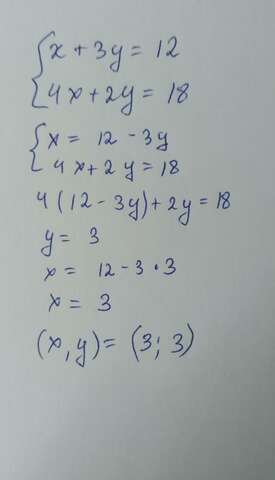 x + 3y = 12
4x + 2y = 18
x = 12 - 3y
4x + 2y = 18
4(12 - 3y) + 2y = 18
y = 3
x = 12 - 3 · 3
x = 3
(x, y) = (3; 3)